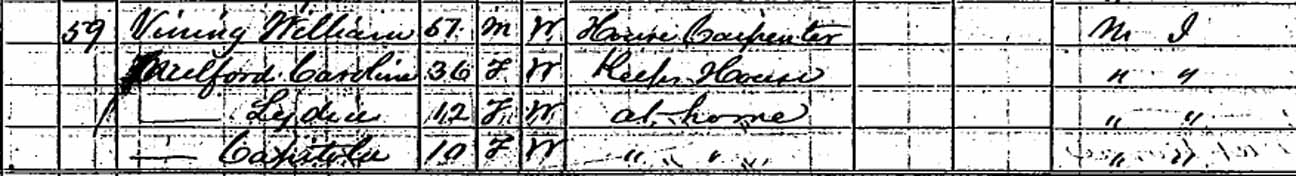 59 Vining William 57 M W House Carpenter N J
Mulford Caroline 36 F W Keeps House " "
1 —— Lydia 12 F W at home " "
—— Capitola 10 F W " " " " "